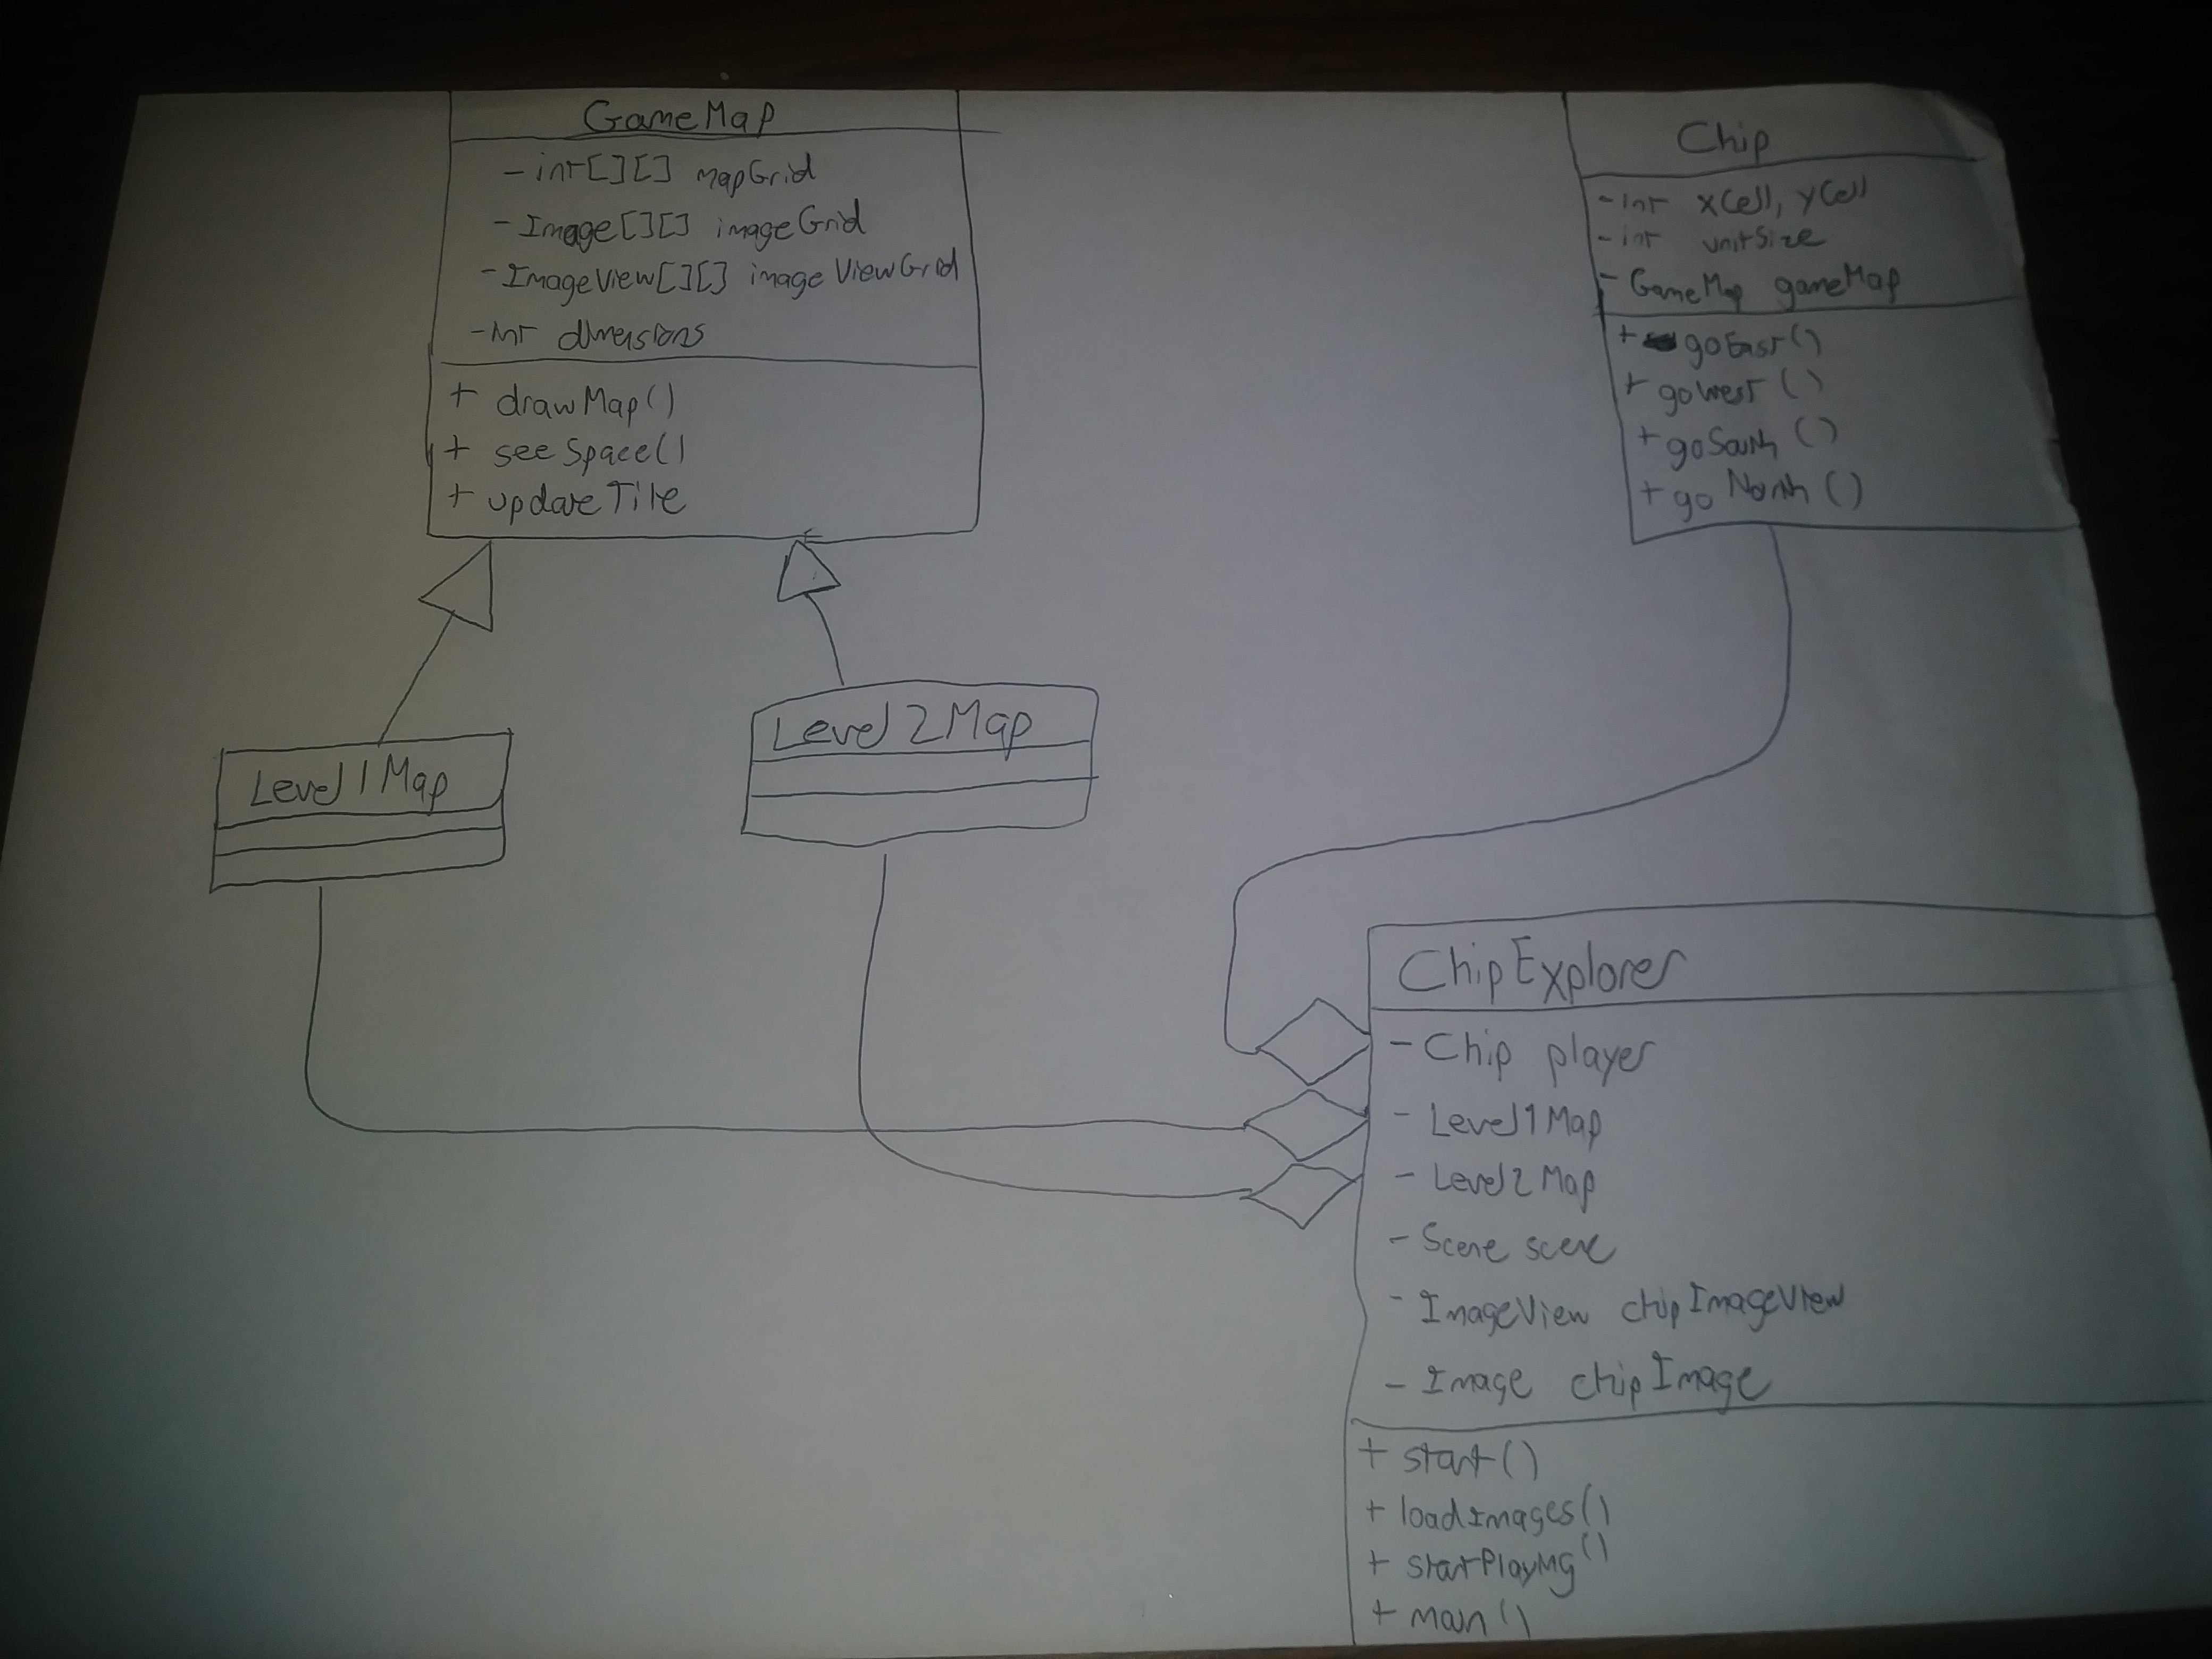 GameMap
- int[][] mapGrid
- Image[][] imageGrid
- ImageView[][] imageViewGrid
- int dimensions
+ drawMap()
+ seeSpace()
+ updateTile
Chip
- int xCell, yCell
- int unitSize
- GameMap gameMap
+ goEast()
+ goWest()
+ goSouth()
+ goNorth()
Level1Map
Level2Map
ChipExplorer
- Chip player
- Level1Map
- Level2Map
- Scene scene
- ImageView chipImageView
- Image chipImage
+ start()
+ loadImages()
+ startPlaying()
+ main()